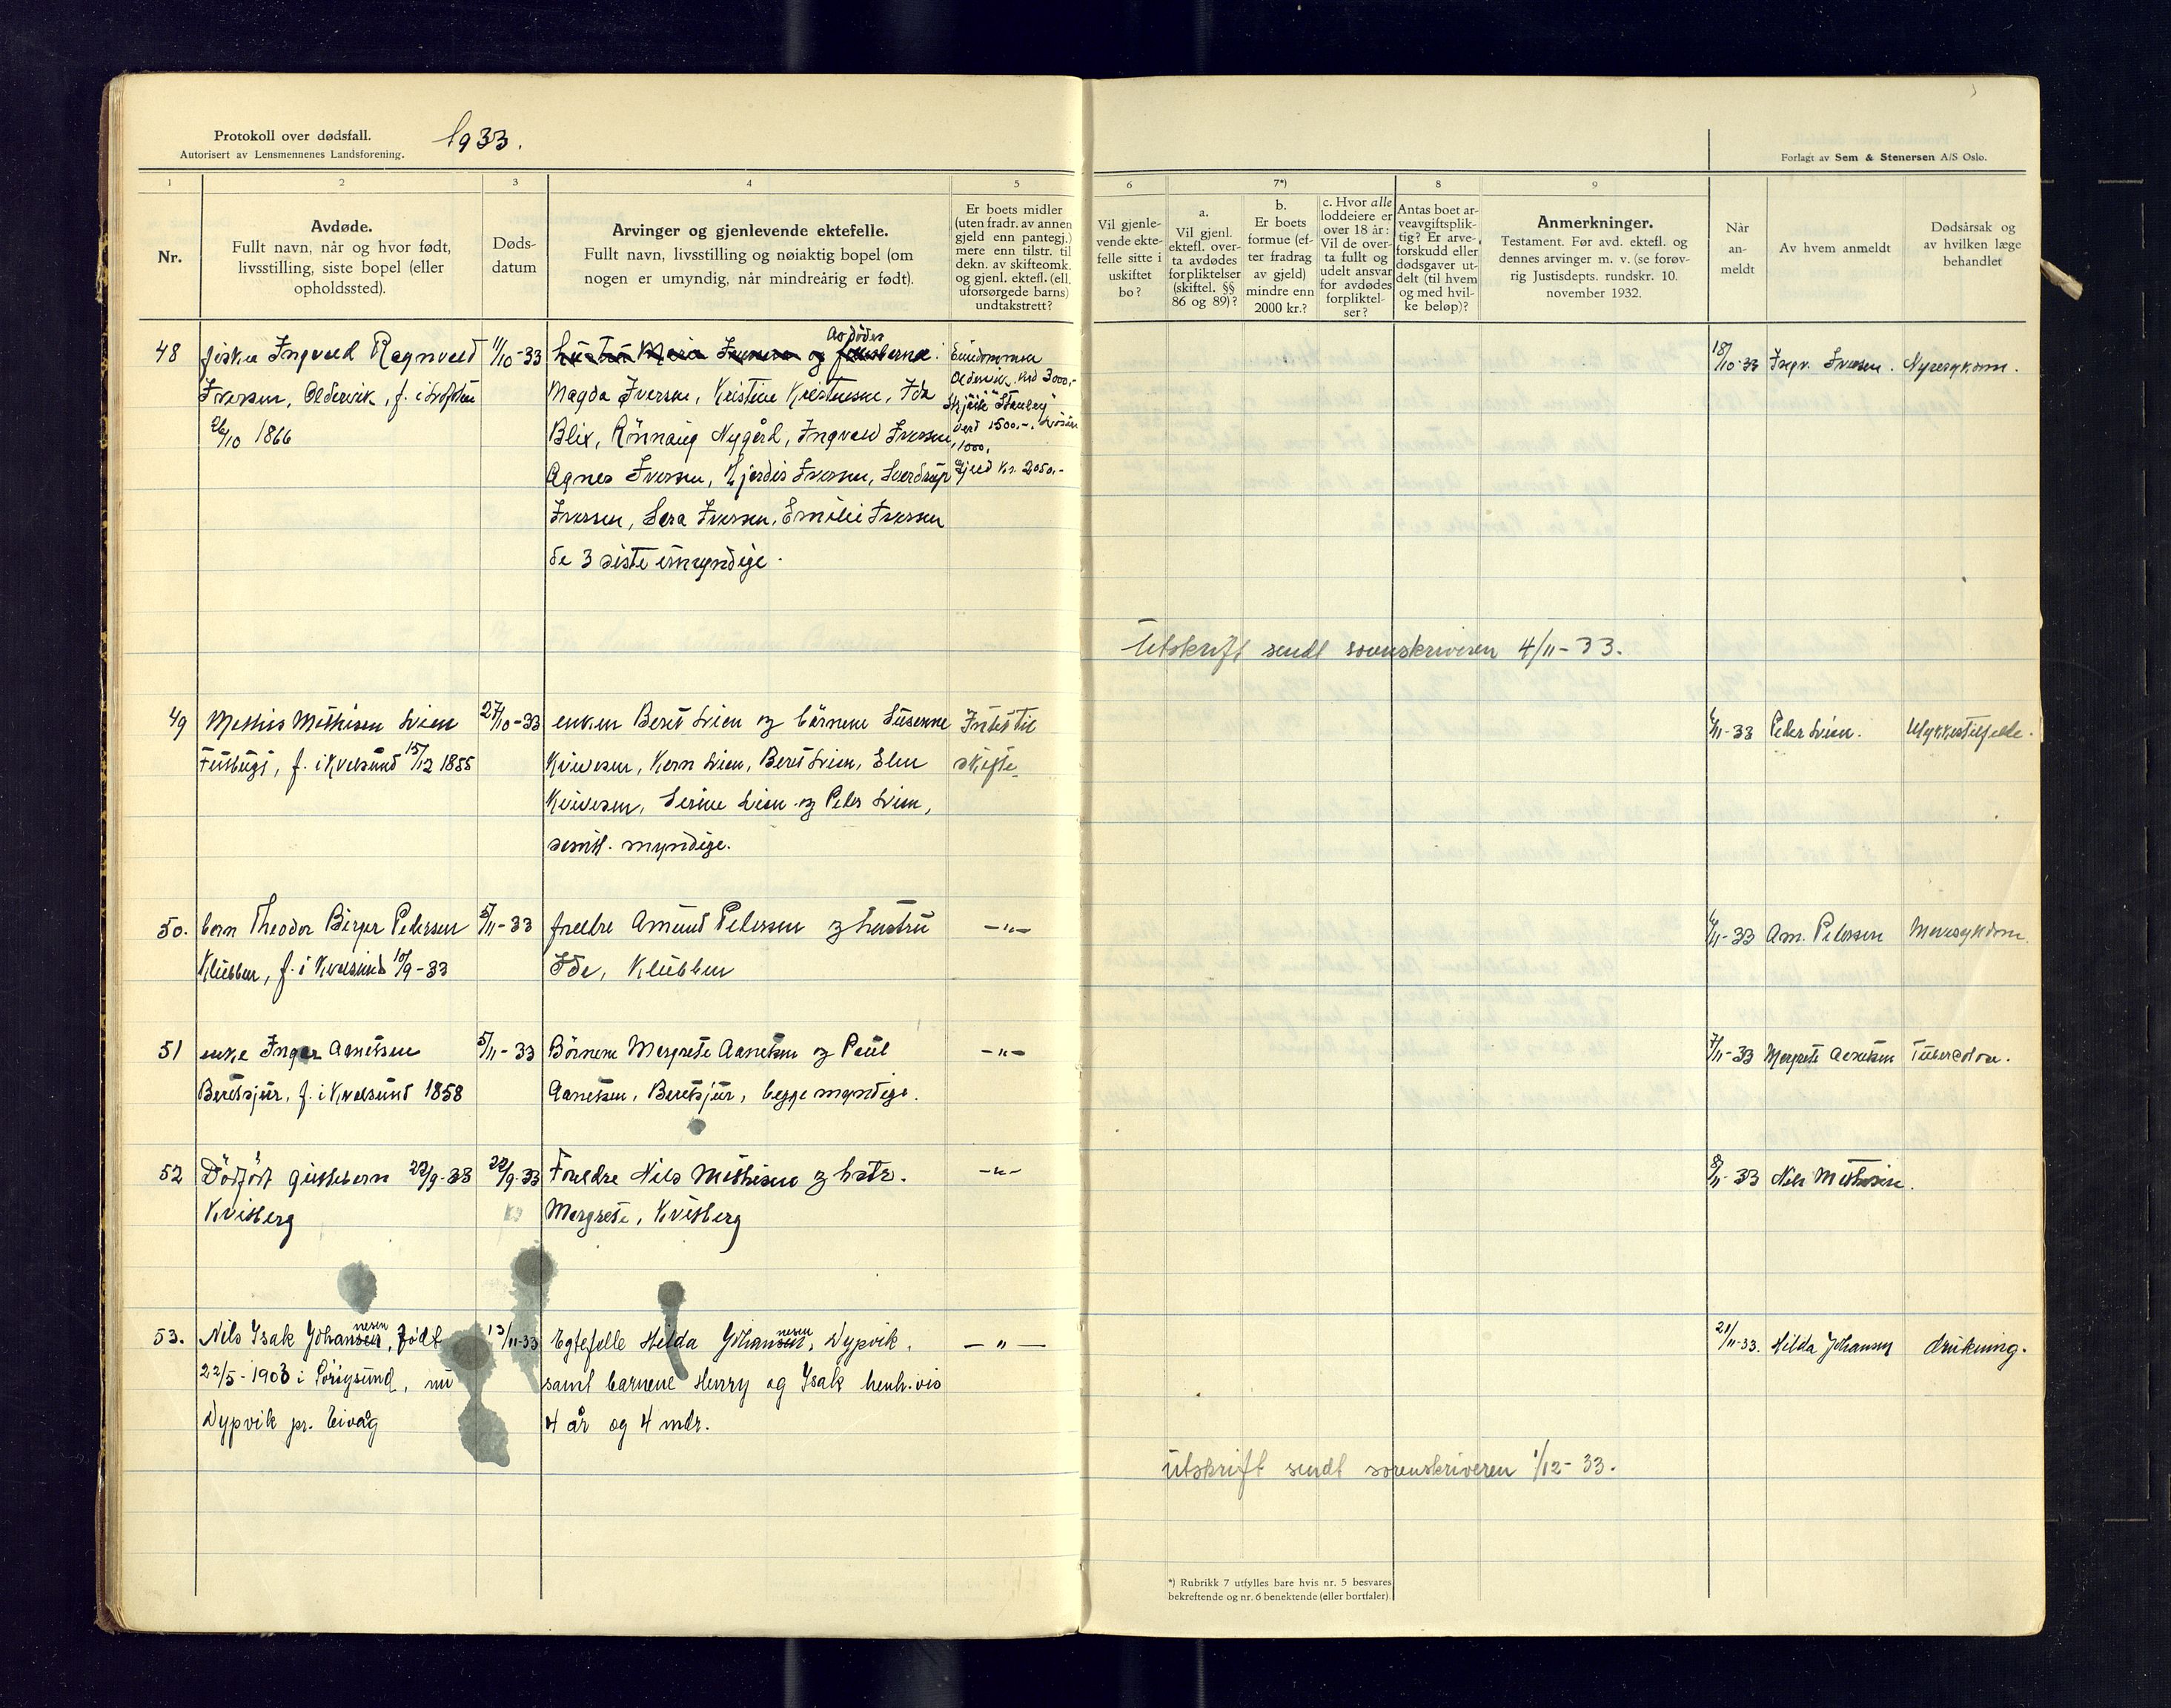 Protokoll over dødsfall.
Autorisert av Lensmennenes Landsforening.
1933.
Forlagt av Sem & Stenersen A/S Oslo.
1 2 3 4 5 6 7*) 8 9
Nr.
Avdøde.
Fullt navn, når og hvor født,
livsstilling, siste bopel (eller
opholdssted).
Døds-
datum
Arvinger og gjenlevende ektefelle.
Fullt navn, livsstilling og nøiaktig bopel (om
nogen er umyndig, når mindreårig er født).
Er boets midler
(uten fradr. av annen
gjeld enn pantegj.)
mere enn tilstr. til
dekn. av skifteomk.
og gjenl. ektefl. (ell.
uforsørgede barns)
undtakstrett?
Vil gjenle-
vende ekte-
felle sitte i
uskiftet
bo?
a.
Vil gjenl.
ektefl. over-
ta avdødes
forpliktelser
(skiftel. §§
86 og 89)?
b.
Er boets
formue (ef-
ter fradrag
av gjeld)
mindre enn
2000 kr.?
c. Hvor alle
loddeiere er
over 18 år:
Vil de over-
ta fullt og
udelt ansvar
for avdødes
forpliktel-
ser?
Antas boet ar-
veavgiftsplik-
tig? Er arve-
forskudd eller
dødsgaver ut-
delt (til hvem
og med hvil-
ke beløp)?
Anmerkninger.
Testament. Før avd. ektefl. og
dennes arvinger m. v. (se forøv-
rig Justisdepts. rundskr. 10.
november 1932.
Når
an-
meldt
Av hvem anmeldt
Dødsårsak og
av hvilken læge
behandlet
48
fisker Ingvald Ragnvald
Iversen, Oldervik, f. i Lofoten
26/10 1866
11/10-33
hustru Maria Iversen og barna: Avdødes
Magda Iversen, Kristine Kristensen, Ida
Blix, Rönnaug Nygård, Ingvald Iversen,
Agnes Iversen, Hjördis Iversen, Sverdrup
Iversen, Sara Iversen, Emilie Iversen
de 3 siste umyndige.
Eiendommen
Oldervik verd 3000,-
verd 1500.-, Lösöre
1000,
Gjeld kr. 2050,-
18/10-33 Ingv. Iversen. Nyresykdom.
Utskrift sendt sorenskriveren 4/11-33.
49
Mathis Mathisen Lien
f. i Kvalsund 15/12 1855
27/10-33
enken Beret Lien og börnene Susanne
Lien, Beret Lien, Elen
Lien og Peder Lien,
samtl. myndige.
Intet til
skifte.
Peder Lien.
Ulykkestilfelle.
50.
barn Theodor Birger Pedersen
Klubben, f. i Kvalsund 10/9-33
5/11-33
foreldre Amund Pedersen og hustru
Ida, Klubben
-"-
6/11-33 Am. Pedersen Mavesykdom.
51
enke Inger Aanetsen
Beretsjur, f. i Kvalsund 1858
5/11-33
Börnene Margrete Aanetsen og Paul
Aanetsen, Beretsjur, begge myndige.
-"-
7/11-33 Margrete Aanetsen Tuberkolose.
52
Dödfödt guttebarn 22/9-33
Kvitberg
22/9-33
Foreldre Nils Mathisen og hstr.
Margrete, Kvitberg
-"-
8/11-33 Nils Mathisen.
53.
Nils Isak Johannesen, født
22/5-1903 i Sörøysund, nu
Dypvik pr. Eivåg
13/11-33
Egtefelle Hilda Johannesen, Dypvik,
samt barnene Henry og Isak henh.vis
4 år og 4 mdr.
— " —
21/11-33. Hilda Johansen drukning.
Utskrift sendt sorenskriveren 1/12-33.
*) Rubrikk 7 utfylles bare hvis nr. 5 besvares
bekreftende og nr. 6 benektende (eller bortfaler).